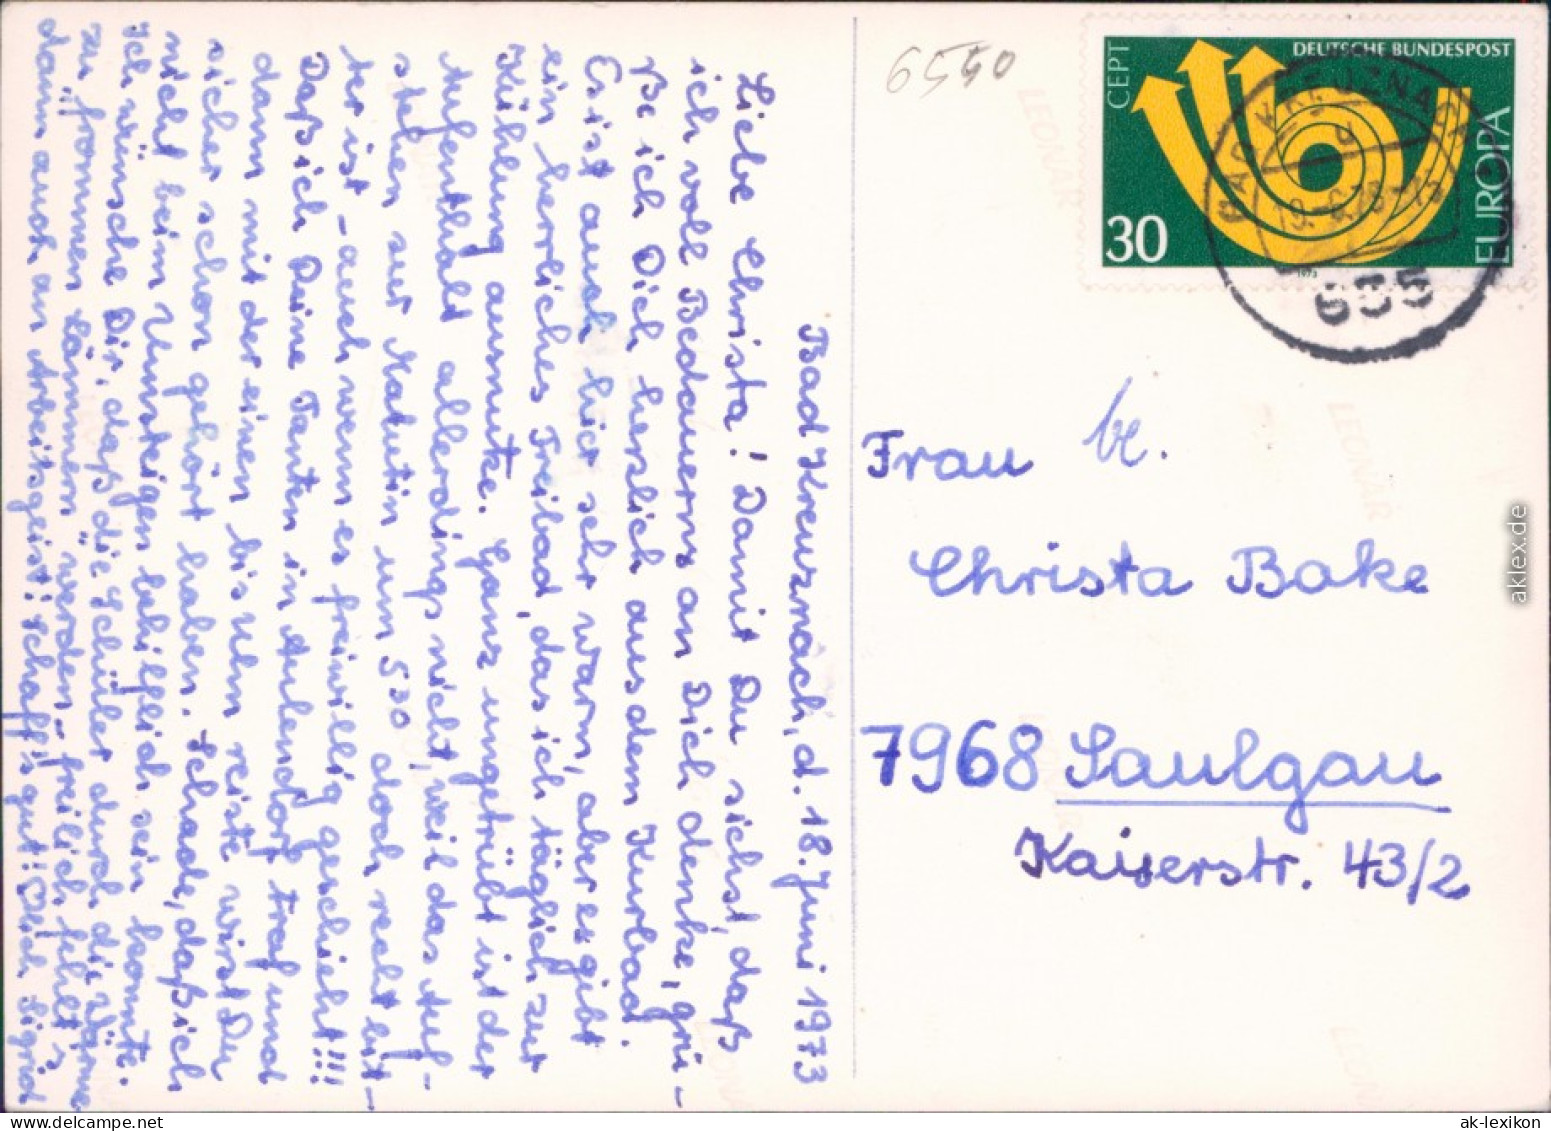 Bad Kreuznach, d. 18. Juni 1973
Liebe Christa! Damit Du siehst, daß
ich voll Bedauerns an Dich denke, grü-
ße ich Dich herzlich aus dem Kurbad.
Es ist auch hier sehr warm, aber es gibt
ein herrliches Freibad, das ich täglich zur
Kühlung ausnutze. Ganz ungetrübt ist der
Aufenthalt allerdings nicht, weil das Auf-
stehen zur Matutin um 5³⁰ doch recht bit-
ter ist - auch wenn es freiwillig geschieht!!!
Daß ich Deine Tanten in Aulendorf traf und
dann mit der einen bis Ulm reiste wirst Du
sicher schon gehört haben. Schade, daß ich
nicht beim Umsteigen behilflich sein konnte.
Ich wünsche Dir, daß die Schüler durch die Wärme
zu "frommen Lämmern" werden - freilich fehlt's
dann auch an Arbeitsgeist! Schaff's gut! Dich Sigrid
6550
CEPT
DEUTSCHE BUNDESPOST
30
EUROPA
1973
BAD KREUZNACH
655
Frau be.
Christa Bake
7968 Saulgau
Kaiserstr. 43/2
LEONAR
LEONAR
LEONAR
aklex.de
ak-lexikon